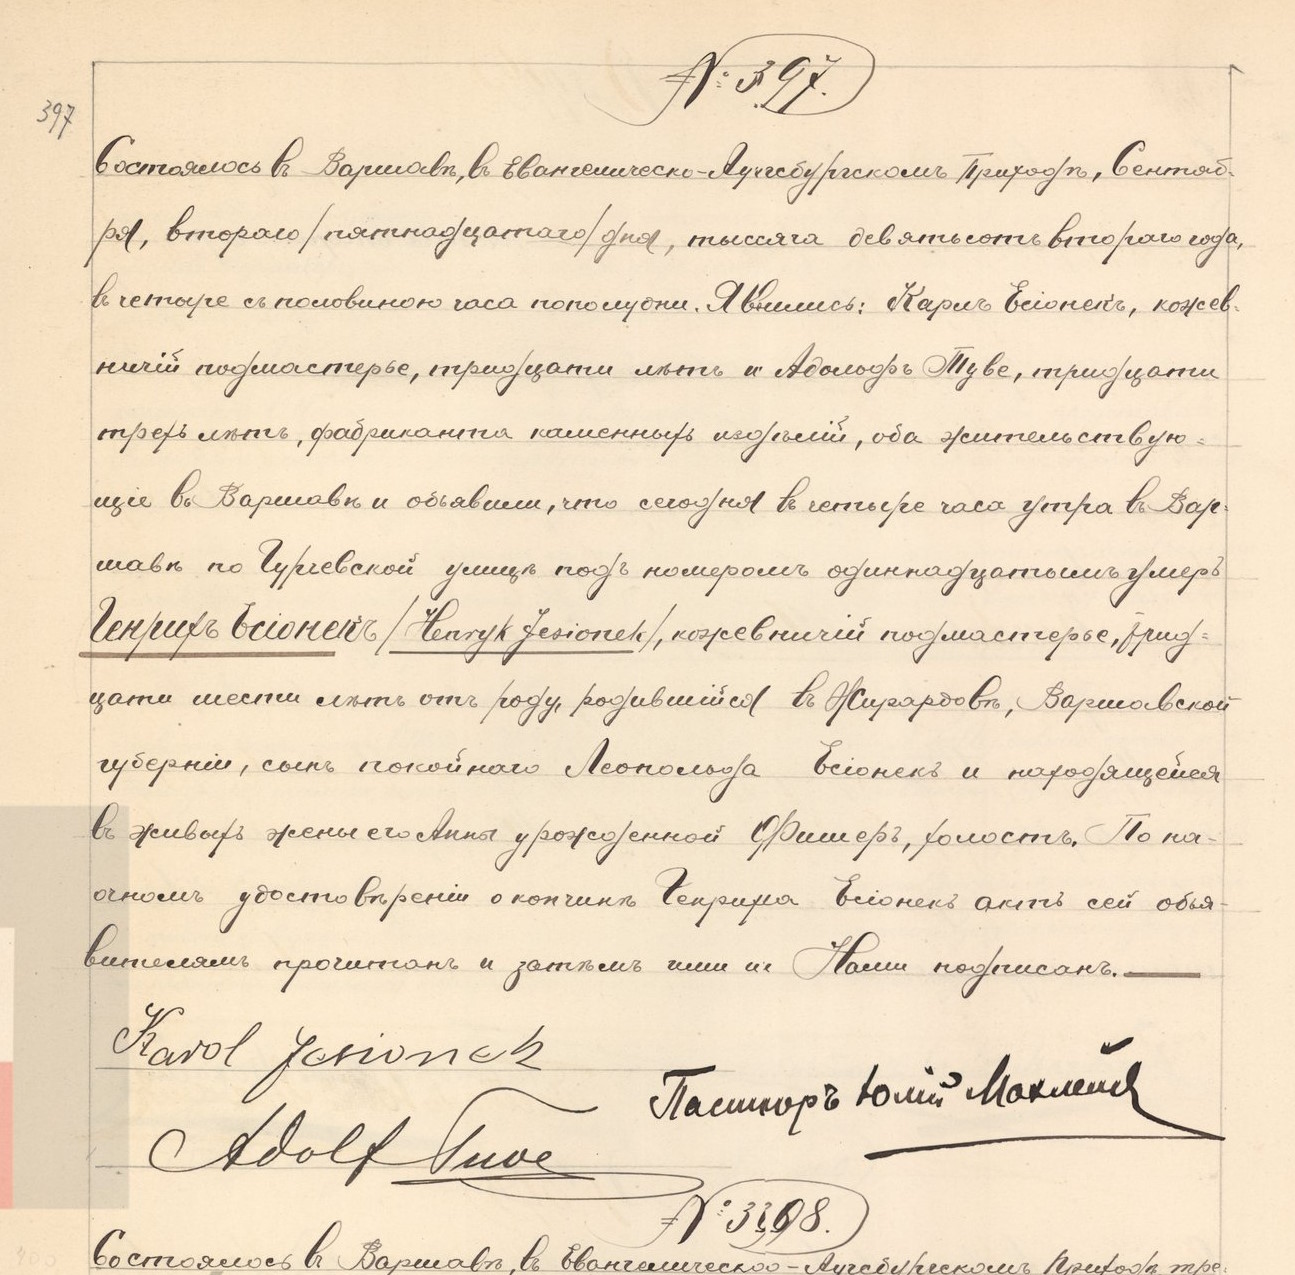 № 397.
397
Состоялось въ Варшавѣ, въ Евангелическо-Аугсбургскомъ Приходѣ, Сентяб-
ря, втораго /пятнадцатаго/ дня, тысяча девятьсотъ втораго года,
въ четыре съ половиною часа пополудни. Явились: Карлъ Есіонекъ, кожев-
ничій подмастерье, тридцати лѣтъ и Адольфъ Туве, тридцати
трехъ лѣтъ, фабриканта каменныхъ издѣлій, оба жительствую-
щіе въ Варшавѣ и объявили, что сегодня въ четыре часа утра въ Вар-
шавѣ по Гурчевской улицѣ подъ номеромъ одиннадцатымъ умеръ
Генрихъ Есіонекъ /Henryk Jesionek/, кожевничій подмастерье, трид-
цати шести лѣтъ отъ роду, родившійся въ Жирардовѣ, Варшавской
губерніи, сынъ покойнаго Леопольда Есіонекъ и находящейся
въ живыхъ жены его Анны урожденной Фишеръ, холостъ. По на-
очномъ удостовѣреніи о кончинѣ Генриха Есіонекъ актъ сей объя-
вителямъ прочитанъ и затѣмъ ими и Нами подписанъ.
Karol Jesionek
Пасторъ Юлій
Adolf Tuve
№ 398.
Состоялось въ Варшавѣ, въ Евангелическо-Аугсбургскомъ Приходѣ тре-